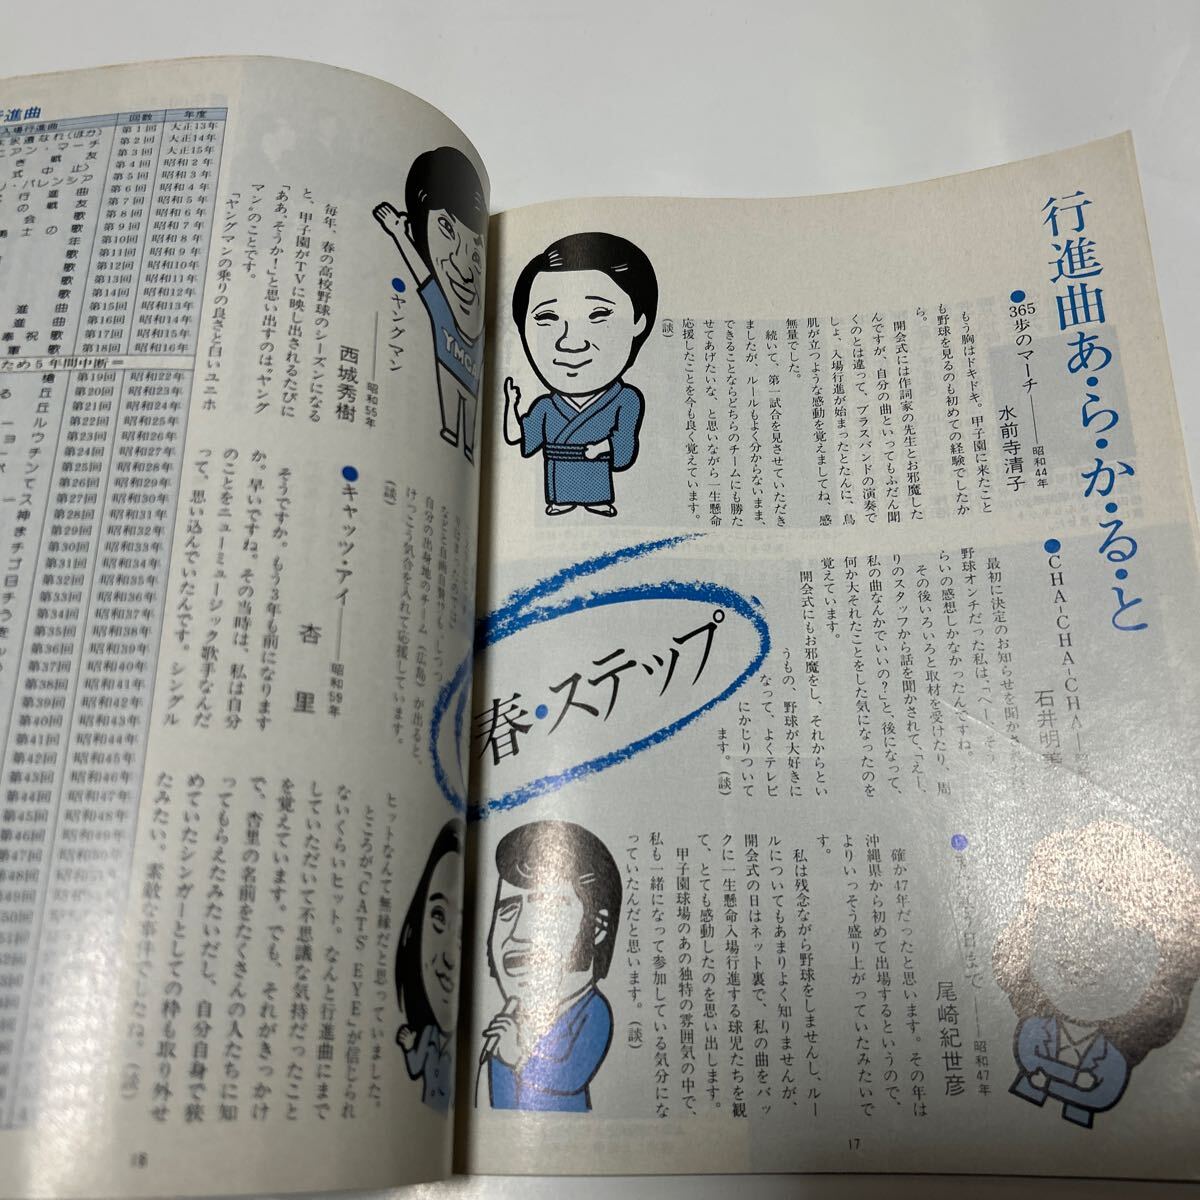 行進曲あ・ら・か・る・と
●365歩のマーチ――昭和44年
水前寺清子
もう胸はドキドキ。甲子園に来たこと
も野球を見るのも初めての経験でしたか
ら。
開会式には作詞家の先生とお邪魔した
んですが、自分の曲といってもふだん聞
くのとは違って、ブラスバンドの演奏で
しょ、入場行進が始まったとたんに、鳥
肌が立つような感動を覚えましてね、感
無量でした。
続いて、第一試合を見させていただき
ましたが、ルールもよく分からないまま、
できることならどちらのチームにも勝た
せてあげたいな、と思いながら一生懸命
応援したことを今も良く覚えています。
(談)
●CHA-CHA-CHA―
石井明美
最初に決定のお知らせを聞かさ
野球オンチだった私は、「へー、そ
らいの感想しかなかったんですね。
その後いろいろと取材を受けたり、周
りのスタッフから話を聞かされて、「えー、
私の曲なんかでいいの?」と、後になって、
何か大それたことをした気になったのを
覚えています。
開会式にもお邪魔をし、それからとい
うもの、野球が大好きに
なって、よくテレビ
にかじりついて
ます。(談)
春・ステップ
日まで――昭和47年
尾崎紀世彦
確か47年だったと思います。その年は
沖縄県から初めて出場するというので、
よりいっそう盛り上がっていたみたいで
す。
私は残念ながら野球をしませんし、ルー
ルについてもあまりよく知りませんが、
開会式の日はネット裏で、私の曲をバッ
クに一生懸命入場行進する球児たちを観
て、とても感動したのを思い出します。
甲子園球場のあの独特の雰囲気の中で、
私も一緒になって参加している気分にな
っていたんだと思います。(談)
17
YMCA
●ヤングマン――昭和55年
西城秀樹
毎年、春の高校野球のシーズンになる
と、甲子園がTVに映し出されるたびに
「ああ、そうか!」と思い出すのは〝ヤング
マン〟のことです。
〝ヤングマンの乗りの良さと白いユニホ
などと自画
自分の出身地のチーム(広島)が出ると、
けっこう気合を入れて応援しています。
(談)
●キャッツ・アイ――昭和59年
杏里
そうですか。もう3年も前になります
か。早いですね。その当時は、私は自分
のことをニューミュージック歌手なんだ
って、思い込んでいたんです。シングル
ヒットなんて無縁だと思っていました。
ところが「CATS EYE」が信じられ
ないくらいヒット。なんと行進曲にまで
していただいて不思議な気持だったこと
を覚えています。でも、それがきっかけ
で、杏里の名前をたくさんの人たちに知
ってもらえたみたいだし、自分自身で狭
めていたシンガーとしての枠も取り外せ
たみたい。素敵な事件でしたね。(談)
18
行進曲
入場行進曲 回数 年度
第1回 大正13年
第2回 大正14年
第3回 大正15年
第4回 昭和2年
第5回 昭和3年
第6回 昭和4年
第7回 昭和5年
第8回 昭和6年
第9回 昭和7年
第10回 昭和8年
第11回 昭和9年
第12回 昭和10年
第13回 昭和11年
第14回 昭和12年
第15回 昭和13年
第16回 昭和14年
第17回 昭和15年
第18回 昭和16年
ため5年間中断＝
第19回 昭和22年
第20回 昭和23年
第21回 昭和24年
第22回 昭和25年
第23回 昭和26年
第24回 昭和27年
第25回 昭和28年
第26回 昭和29年
第27回 昭和30年
第28回 昭和31年
第29回 昭和32年
第30回 昭和33年
第31回 昭和34年
第32回 昭和35年
第33回 昭和36年
第34回 昭和37年
第35回 昭和38年
第36回 昭和39年
第37回 昭和40年
第38回 昭和41年
第39回 昭和42年
第40回 昭和43年
第41回 昭和44年
第42回 昭和45年
第43回 昭和46年
第44回 昭和47年
第45回 昭和48年
第46回 昭和49年